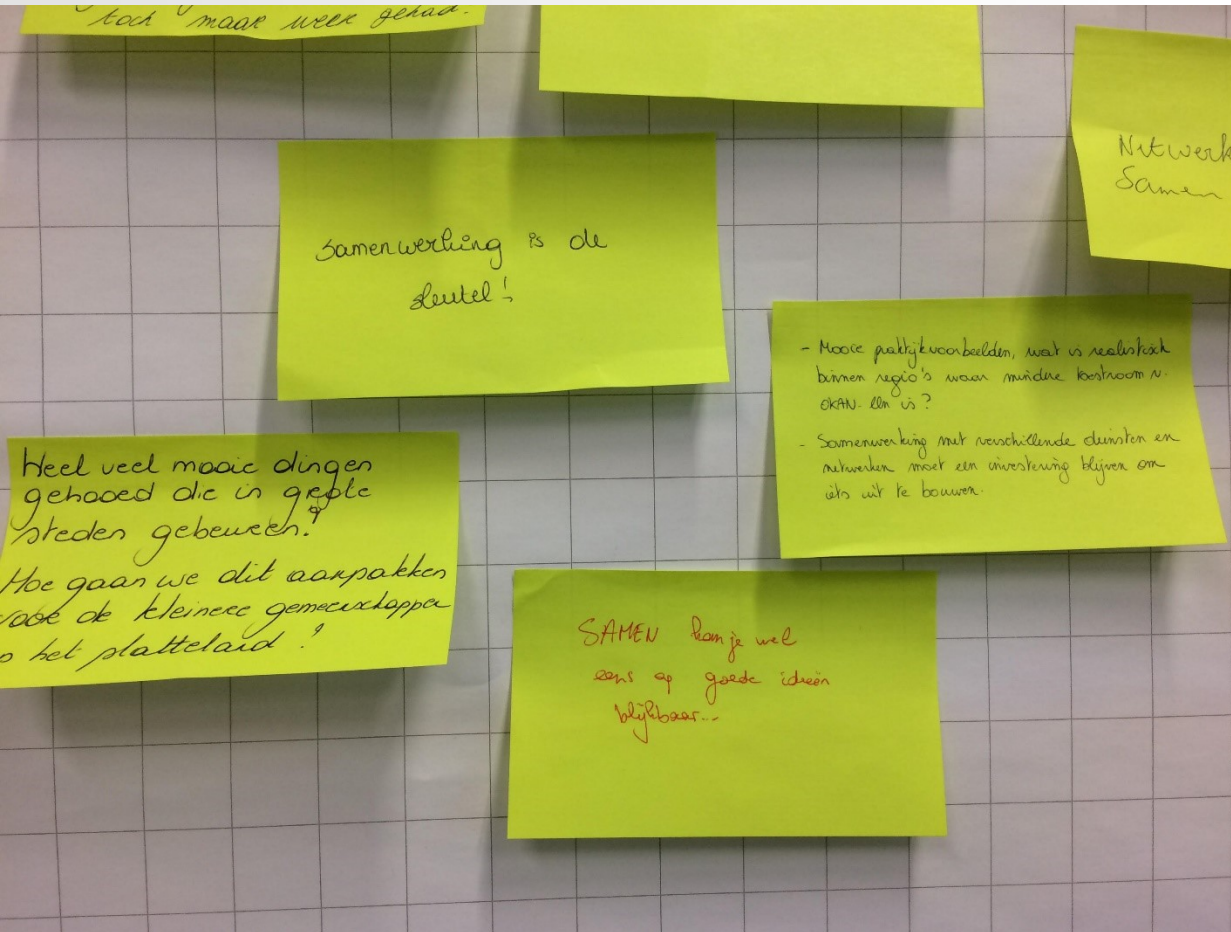 toch maar weer gehad.
Netwerk
Samen
samenwerking is de
sleutel!
- Mooie praktijkvoorbeelden, wat is realistisch
binnen regio's waar mindere toestroom v.
OKAN-lln is?
- Samenwerking met verschillende diensten en
netwerken moet een investering blijven om
iets uit te bouwen.
Heel veel mooie dingen
gehooed die in grote
steden gebeuren!
Hoe gaan we dit aanpakken
voor de kleinere gemeenschappen
op het platteland?
SAMEN kom je wel
eens op goede ideeën
blijkbaar...